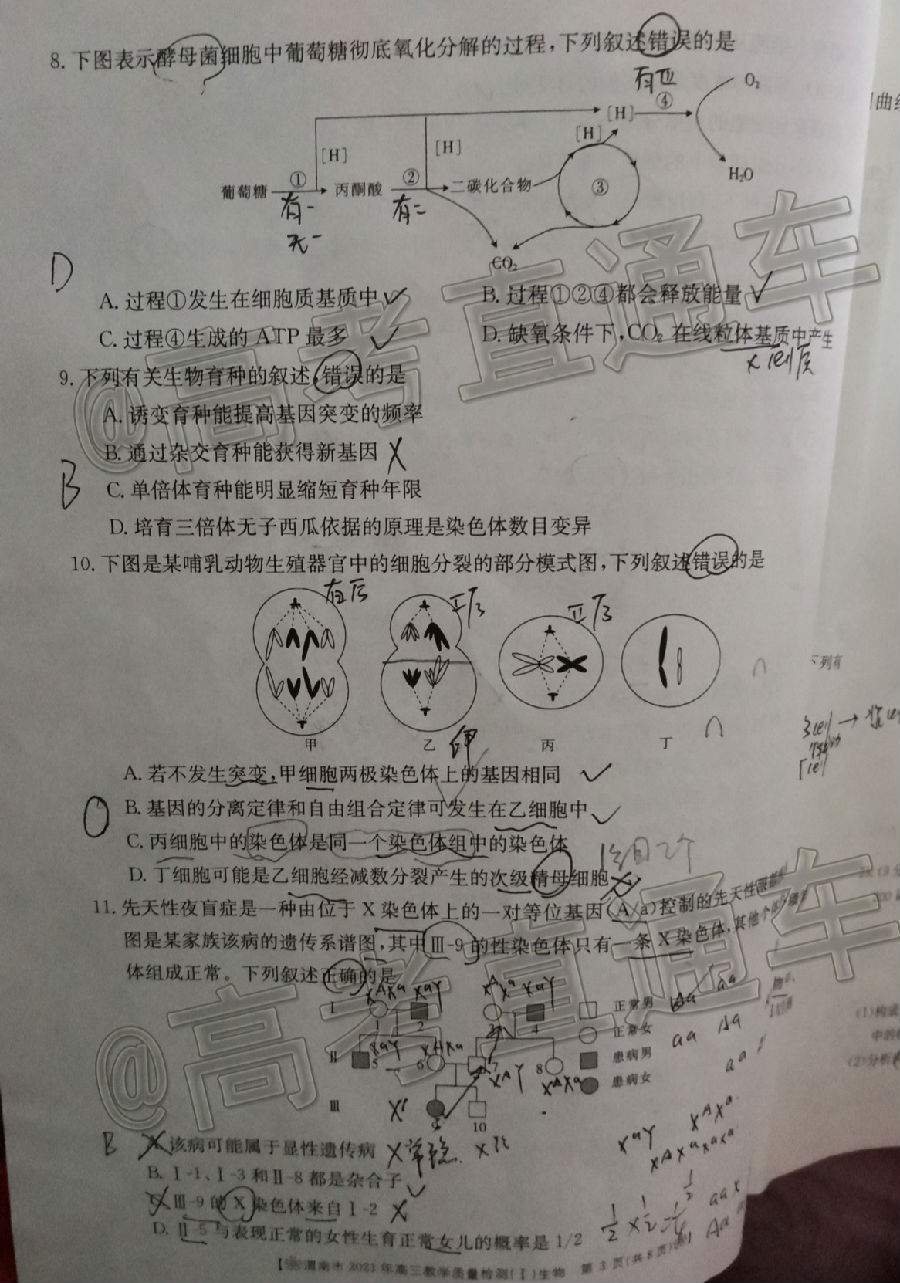 8. 下图表示酵母菌细胞中葡萄糖彻底氧化分解的过程，下列叙述错误的是
有
④
O₂
[H]
[H]
[H]
[H]
H₂O
葡萄糖
①
丙酮酸
②
二碳化合物
③
有一
有二
无一
CO₂
D
A. 过程①发生在细胞质基质中 ✓
B. 过程①②④都会释放能量 ✓
C. 过程④生成的 ATP 最多 ✓
D. 缺氧条件下，CO₂ 在线粒体基质中产生
9. 下列有关生物育种的叙述，错误的是
A. 诱变育种能提高基因突变的频率
B. 通过杂交育种能获得新基因 X
B
C. 单倍体育种能明显缩短育种年限
D. 培育三倍体无子西瓜依据的原理是染色体数目变异
10. 下图是某哺乳动物生殖器官中的细胞分裂的部分模式图，下列叙述错误的是
甲
乙
丙
丁
A. 若不发生突变，甲细胞两极染色体上的基因相同 ✓
B. 基因的分离定律和自由组合定律可发生在乙细胞中 ✓
C. 丙细胞中的染色体是同一个染色体组中的染色体
D. 丁细胞可能是乙细胞经减数分裂产生的次级精母细胞
11. 先天性夜盲症是一种由位于 X 染色体上的一对等位基因(A/a)控制的先天性眼部
图是某家族该病的遗传系谱图，其中Ⅲ-9 的性染色体只有一条 X 染色体，其他个体
体组成正常。下列叙述正确的是
Ⅰ
XᴬXᵃ
XᵃY
XᴬXᵃ
XᵃY
1
2
4
正常男
正常女
Ⅱ
XᵃY
XᴬXᵃ
5
6
7
8
XᴬY
XᴬXᵃ
患病男
患病女
Ⅲ
10
Aa
aa
aa
Aa
B
A. 该病可能属于显性遗传病 X
B. Ⅰ-1、Ⅰ-3 和Ⅱ-8 都是杂合子 ✓
C. Ⅲ-9 的 X 染色体来自Ⅰ-2 X
D. Ⅱ-5 与表现正常的女性生育正常女儿的概率是 1/2
XᵃY
XᴬXᵃ
渭南市 2021 年高三教学质量检测(Ⅰ)生物 第 3 页(共 8 页)
下列有
(1)构成
(2)分析
@高考直通车
@高考直通车